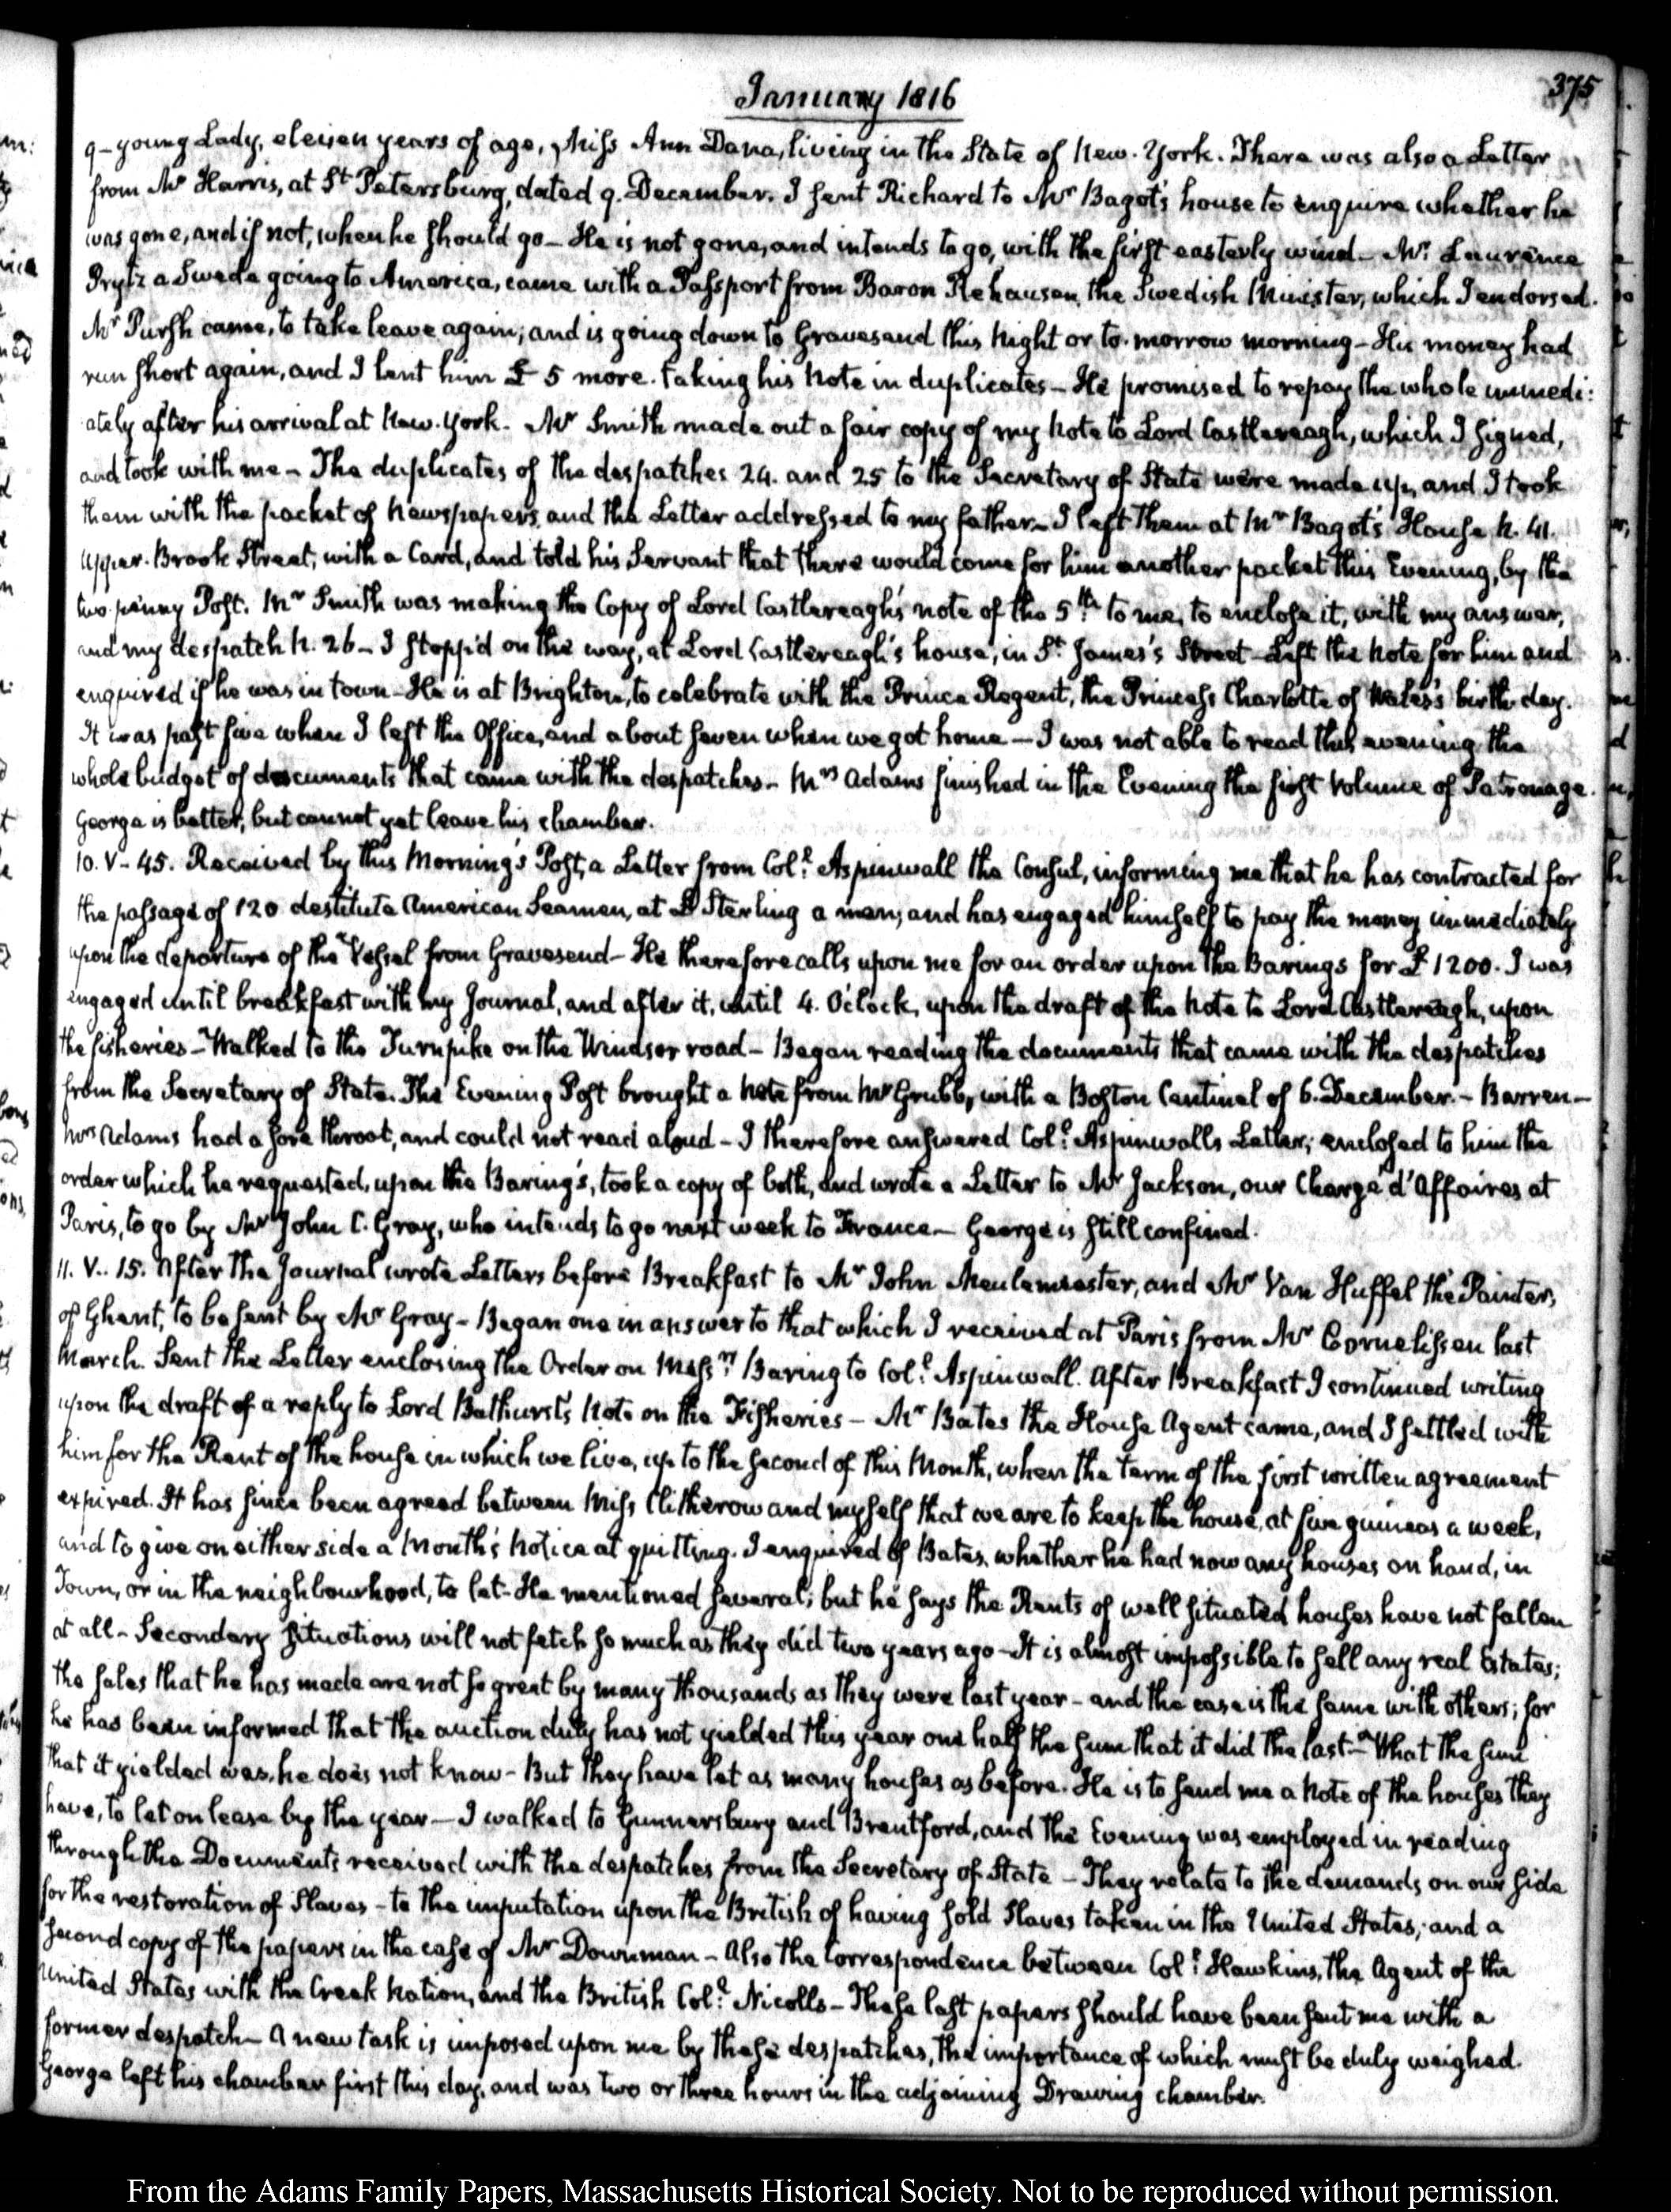 January 1816
375
9— young Lady, eleven years of age, Miss Ann Dana, living in the State of New-York. There was also a Letter
from Mr Harris, at St Petersburg, dated 9. December. I sent Richard to Mr Bagot's house to enquire whether he
was gone, and if not, when he should go— He is not gone, and intends to go, with the first easterly wind— Mr Laurence
Prytz a Swede going to America, came with a Passport from Baron Rehausen, the Swedish Minister, which I endorsed.
Mr Pursh came, to take leave again; and is going down to Gravesend this Night or to-morrow morning— His money had
run short again, and I lent him £5 more. taking his Note in duplicates— He promised to repay the whole immedi:
ately after his arrival at New-York. Mr Smith made out a fair copy of my Note to Lord Castlereagh, which I signed,
and took with me— The duplicates of the despatches 24. and 25 to the Secretary of State were made up, and I took
them with the packet of Newspapers and the Letter addressed to my father— I left them at Mr Bagot's House N. 41.
Upper-Brook Street, with a Card, and told his Servant that there would come for him another packet this Evening, by the
two-penny Post. Mr Smith was making the Copy of Lord Castlereagh's note of the 5th to me, to enclose it, with my answer,
and my despatch N. 26— I stopp'd on the way, at Lord Castlereagh's house, in St James's Street— Left the Note for him and
enquired if he was in town— He is at Brighton, to celebrate with the Prince Regent, the Princess Charlotte of Wales's birth day.
It was past five when I left the Office, and about seven when we got home— I was not able to read this evening the
whole budget of documents that came with the despatches— Mrs Adams finished in the Evening the first Volume of Patronage.
George is better, but cannot yet leave his chamber.
10. V-45. Received by this Morning's Post, a Letter from Coll Aspinwall the Consul, informing me that he has contracted for
the passage of 120 destitute American Seamen, at £ Sterling a man; and has engaged himself to pay the money immediately
upon the departure of the Vessel from Gravesend— He therefore calls upon me for an order upon the Barings for £1200. I was
engaged until breakfast with my Journal, and after it, until 4. O'clock, upon the draft of the Note to Lord Castlereagh, upon
the fisheries— Walked to the Turnpike on the Windsor road— Began reading the documents that came with the despatches
from the Secretary of State. The Evening Post brought a Note from Mr Grubb, with a Boston Centinel of 6. December.— Barren—
Mrs Adams had a sore throat, and could not read aloud— I therefore answered Coll Aspinwalls Letter; enclosed to him the
order which he requested, upon the Baring's, took a copy of both, and wrote a Letter to Mr Jackson, our Chargé d'Affaires at
Paris, to go by Mr John C. Gray, who intends to go next week to France— George is still confined.
11. V..15. After the Journal wrote Letters before Breakfast to Mr John Meulemeester, and Mr Van Huffel the Painter,
of Ghent, to be sent by Mr Gray— Began one in answer to that which I received at Paris from Mr Cornelissen last
March. Sent the Letter enclosing the Order on Messrs Baring to Coll Aspinwall. After Breakfast I continued writing
upon the draft of a reply to Lord Bathurst's Note on the Fisheries— Mr Bates the House Agent came, and I settled with
him for the Rent of the house in which we live, up to the second of this Month, when the term of the first written agreement
expired. It has since been agreed between Miss Clitherow and myself that we are to keep the house, at five guineas a week,
and to give on either side a Month's Notice at quitting. I enquired of Bates, whether he had now any houses on hand, in
Town, or in the neighbourhood, to let— He mentioned several; but he says the Rents of well situated houses have not fallen
at all— Secondary situations will not fetch so much as they did two years ago— It is almost impossible to sell any real Estates;
the sales that he has made are not so great by many thousands as they were last year— and the case is the same with others; for
he has been informed that the auction duty has not yielded this year one half the sum that it did the last— What the sum
that it yielded was, he does not know— But they have let as many houses as before. He is to send me a Note of the houses they
have, to let on lease by the year— I walked to Gunnersbury and Brentford, and the Evening was employed in reading
through the Documents received with the despatches from the Secretary of State— They relate to the demands on our side
for the restoration of Slaves— to the imputation upon the British of having sold Slaves taken in the United States; and a
second copy of the papers in the case of Mr Downman— Also the Correspondence between Coll Hawkins, the Agent of the
United States with the Creek Nation, and the British Coll Nicolls— These last papers should have been sent me with a
former despatch— A new task is imposed upon me by these despatches, the importance of which must be duly weighed.
George left his chamber first this day, and was two or three hours in the adjoining Drawing chamber.
From the Adams Family Papers, Massachusetts Historical Society. Not to be reproduced without permission.